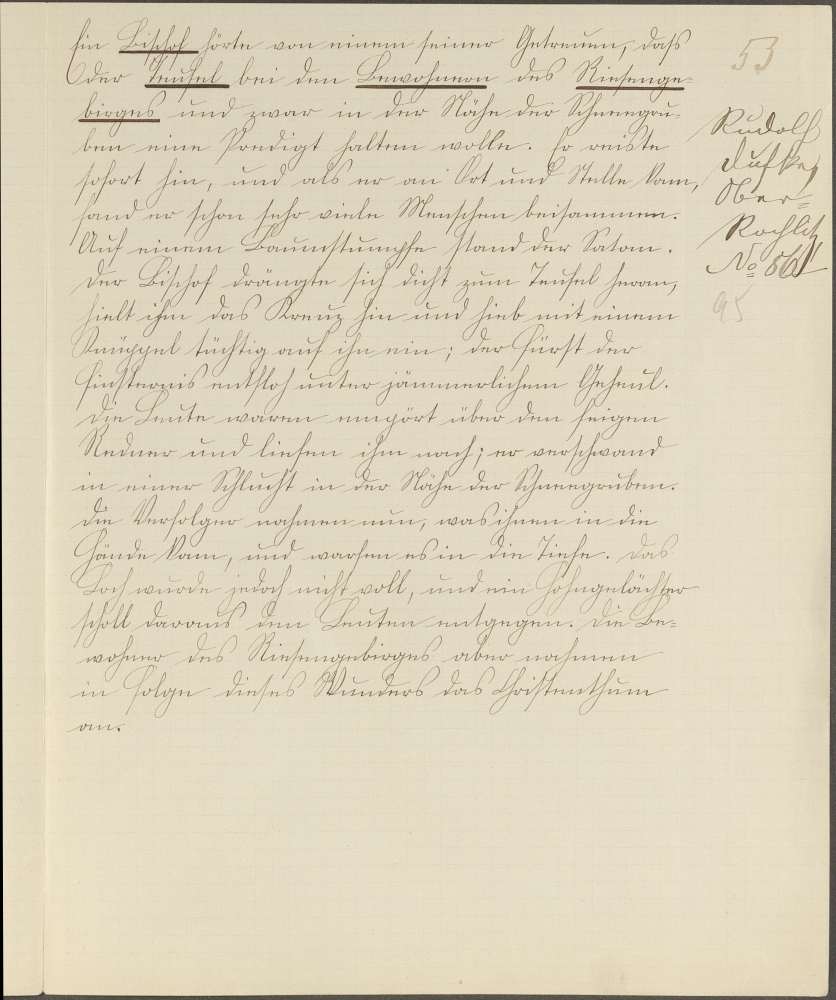 53
Ein Bischof hörte von einem seiner Getreuen, dass
der Teufel bei den Bewohnern des Riesenge-
birges und zwar in der Nähe der Schneegru-
ben eine Predigt halten wolle. Er reiste
sofort hin, und als er an Ort und Stelle kam,
fand er schon sehr viele Menschen beisammen.
Auf einem Baumstumpfe stand der Satan.
Der Bischof drängte sich dicht zum Teufel heran,
hielt ihm das Kreuz hin und hieb mit einem
Knüppel tüchtig auf ihn ein; der Fürst der
Finsternis entfloh unter jämmerlichem Geheul.
Die Leute waren empört über den feigen
Redner und liefen ihm nach; er verschwand
in einer Schlucht in der Nähe der Schneegruben.
Die Verfolger nahmen nun, was ihnen in die
Hände kam, und warfen es in die Tiefe. Das
Loch wurde jedoch nicht voll, und ein Hohngelächter
scholl daraus den Leuten entgegen. Die Be-
wohner des Riesengebirges aber nahmen
in Folge dieses Wunders das Christenthum
an.
Rudolf
Dufke,
Ober-
Rochlitz
No 86
95